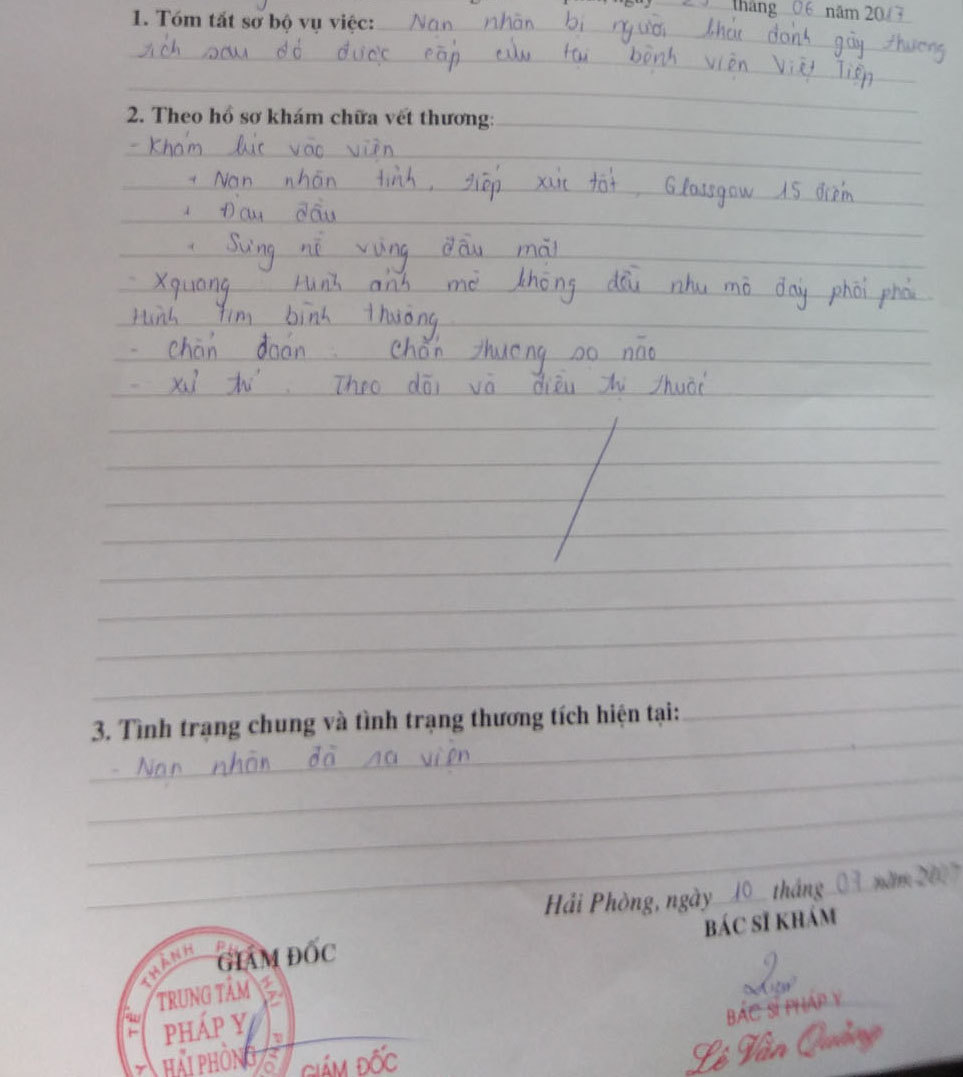 tháng 06 năm 2017
1. Tóm tắt sơ bộ vụ việc: Nạn nhân bị người khác đánh gây thương
tích sau đó được cấp cứu tại bệnh viện Việt Tiệp
2. Theo hồ sơ khám chữa vết thương:
- Khám lúc vào viện
+ Nạn nhân tỉnh, tiếp xúc tốt, Glassgow 15 điểm
+ Đau đầu
+ Sưng nề vùng đầu mặt
- Xquang Hình ảnh mờ không đều như mờ đáy phổi phải
Hình tim bình thường
- Chẩn đoán: Chấn thương sọ não
- Xử trí: Theo dõi và điều trị thuốc
3. Tình trạng chung và tình trạng thương tích hiện tại:
- Nạn nhân đã ra viện
Hải Phòng, ngày 10 tháng 07 năm 2017
GIÁM ĐỐC
BÁC SĨ KHÁM
TẾ THÀNH PHỐ HẢI PHÒNG
TRUNG TÂM
PHÁP Y
HẢI PHÒNG
GIÁM ĐỐC
BÁC SĨ PHÁP Y
Lê Văn Quảng